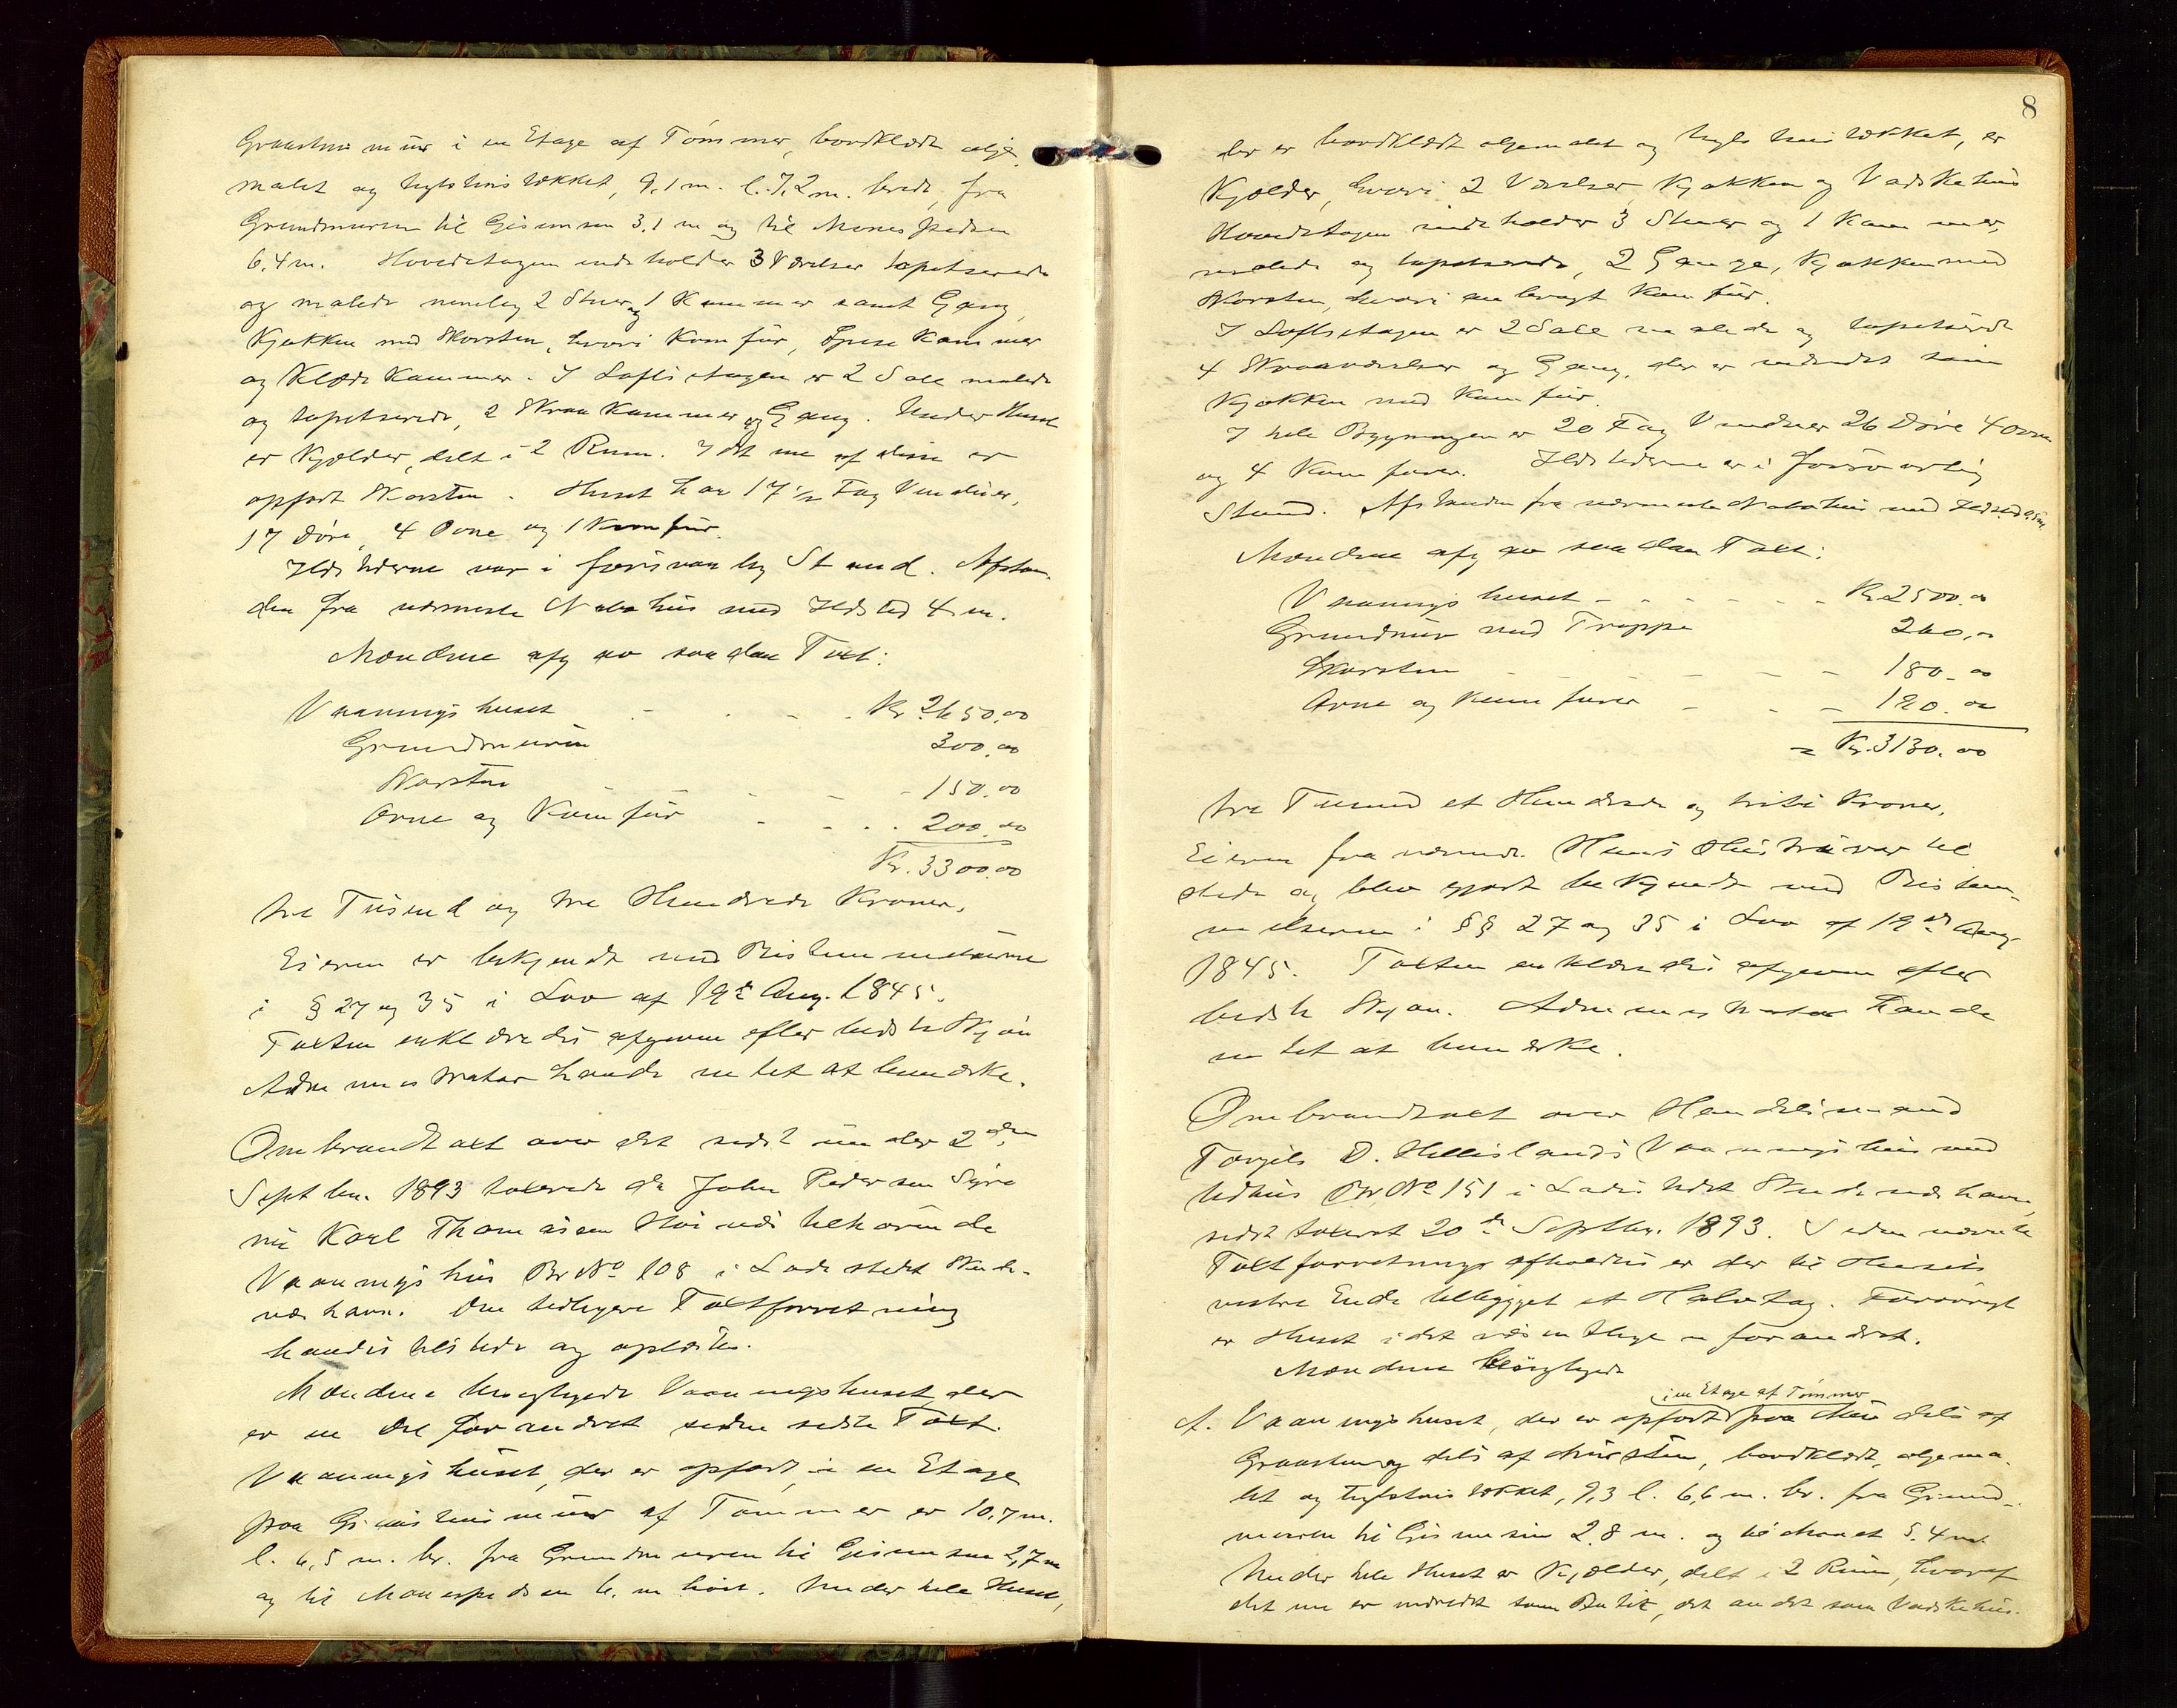 Graastensmur i en Etage af Tømmer, bordklædt olje-
malet og teglstenstækket, 9,1 m. l. 7,2 m. bredt, fra
Grundmuren til Gesimsen 3,1 m og til Mønespidsen
6,4 m. Hovedetagen indeholder 3 Værelser tapetserede
og malede nemlig 2 Stuer og 1 Kammer samt Gang,
Kjøkken med Skorsten, hvori Komfur, Spisekammer
og Klædekammer. I Loftsetagen er 2 Sale malede
og tapetserede, 2 Skraakammer og Gang. Under Huset
er Kjælder, delt i 2 Rum. I det ene af disse er
opført Skorsten. Huset har 17 1/2 Fag Vinduer,
17 Døre, 4 Ovne og 1 Komfur.
Ildstederne var i forsvarlig Stand. Afstan-
den fra nærmeste Nabohus med Ildsted 4 m.
Mændene afgav saadan Taxt:
Vaaningshuset - - - Kr. 2650.00
Grundmuren 300.00
Skorsten - - - 150.00
Ovne og Komfur - - - 200.00
Kr. 3300.00
tre Tusind og tre Hundrede Kroner.
Eieren er bekjendt med Bestemmelserne
i § 27 og 35 i Lov af 19de Aug. 1845.
Taxten erklæredes afgiven efter bedste Skjøn
Administrator havde intet at bemærke.
Ombrandtaxt over det sidst under 2den
Septbr. 1893 taxerede da John Pedersen Syre
nu Karl Thomassen tilhørende
Vaaningshus Br No 108 i Ladestedet Skude-
neshavn. Den tidligere Taxtforretning
havdes tilstede og oplæstes.
Mændene besigtigede Vaaningshuset, der
er en Del forandret siden sidste Taxt.
Vaaningshuset, der er opført i en Etage
paa Graastensmur af Tømmer er 10,7 m.
l. 6,5 m. br. fra Grundmuren til Gesimsen 2,7 m
og til Mønespidsen 6. m høit. Under hele Huset,
8
der er bordklædt oljemalet og teglstenstækket, er
Kjælder, hvori 2 Værelser, Kjøkken og Vadskehus
Hovedetagen indeholder 3 Stuer og 1 Kammer,
malede og tapetserede, 2 Gange, Kjøkken med
Skorsten, hvori anbragt Komfur.
I Loftsetagen er 2 Sale malede og tapetserede
4 Skraaværelser og Gang, der er indredet som
Kjøkken med Komfur.
I hele Bygningen er 20 Fag Vinduer 26 Døre 4 Ovne
og 4 Komfurer. Ildstederne er i forsvarlig
Stand. Afstanden fra nærmeste Nabohus med Ildsted
Mændene afgav saadan Taxt:
Vaaningshuset - - - - - - Kr. 2500.00
Grundmur med Trappe 260.00
Skorsten - - - - - 180.00
Ovne og Komfurer - - - 190.00
= Kr. 3130.00
tre Tusind et Hundrede og tretti Kroner.
Eieren fraværende. Hans Hustru var til
stede og blev gjort bekjendt med Bestem-
melserne i §§ 27 og 35 i Lov af 19de Aug
1845. Taxten erklæredes afgiven efter
bedste Skjøn. Administrator havde
intet at bemærke.
Ombrandtaxt over Handelsmand
Torgils D. Hillislands Vaaningshus med
Udhus Br No 151 i Ladestedet Skudeneshavn,
sidst taxeret 20de Septbr. 1893. Siden nævnte
Taxtforretnings afholdes er der til Husets
vestre Ende tilbygget et Halvtag. Forøvrigt
er Huset i det væsentlige uforandret.
Mændene besigtigede
A. Vaaningshuset, der er opført i en Etage af Tømmer paa Mur dels af
Graasten og dels af Mursten, bordklædt, oljema-
let og teglstenstækket, 9,3 l. 6,6 m. br. fra Grund-
muren til Gesimsen 2,8 m. og til Mønet 5,4 m.
Under hele Huset er Kjælder, delt i 2 Rum, hvoraf
det ene er indredet som Butik, det andet som Vadskehus.